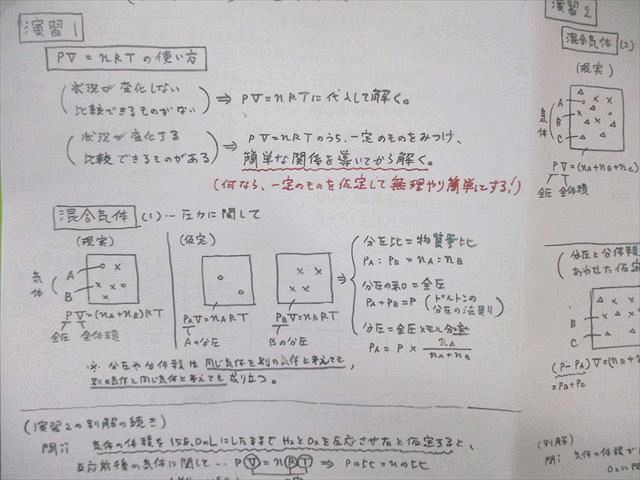 演習1
PV=nRTの使い方
(状況が変化しない
比較できるものがない)
⇒ PV=nRTに代入して解く。
(状況が変化する
比較できるものがある)
⇒ PV=nRTのうち、一定のものをみつけ、
簡単な関係を導いてから解く。
(何なら、一定のものを仮定して無理やり簡単にする!)
混合気体 (1)…圧力に関して
(現実)
気体
A
B
PV=(nA+nB)RT
全圧 全体積
(仮定)
PAV=nART
Aの分圧
PBV=nBRT
Bの分圧
⇒
分圧比=物質量比
PA:PB=nA:nB
分圧の和=全圧
PA+PB=P (ドルトンの分圧の法則)
分圧=全圧×モル分率
PA=P×nA/(nA+nB)
※ 分圧や分体積は同じ気体を別の気体と考えても,
別の気体を同じ気体と考えても成り立つ。
(演習2の別解の続き)
問ii 気体の体積を158.0mLにしたままH2とO2を反応させたと仮定すると、
反応前後の気体に関して… PV=nRT ⇒ Pの比=nの比
演習2
混合気体 (2)
(現実)
気体
A
B
C
PV=(nA+nB+nC)
全圧 全体積
(分圧と分体積
あわせた仮定
A
B
C
(P-PA)V=(nB+n
=PB+PC
(別解)
問i 気体の体積が